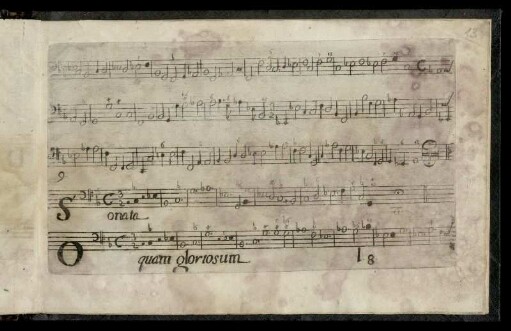 Sonata
O quam gloriosum 18